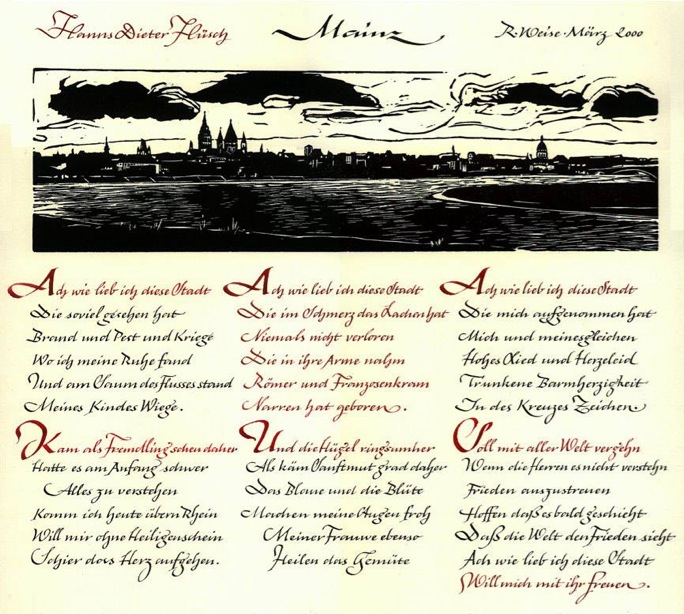 Hanns Dieter Hüsch
Mainz
R. Weise · März 2000
Ach wie lieb ich diese Stadt
Die soviel gesehen hat
Brand und Pest und Kriege
Wo ich meine Ruhe fand
Und am Saum des Flusses stand
Meines Kindes Wiege.
Kam als Fremdling schon daher
Hatte es am Anfang schwer
Alles zu verstehen
Komm ich heute übern Rhein
Will mir ohne Heiligenschein
Schier das Herz aufgehen.
Ach wie lieb ich diese Stadt
Die im Schmerz das Lachen hat
Niemals nicht verloren
Die in ihre Arme nahm
Römer und Franzosenkram
Narren hat geboren.
Und die Hügel ringsumher
Als käm Sanftmut grad daher
Das Blaue und die Blüte
Machen meine Augen froh
Meiner Frauwe ebenso
Heilen das Gemüte
Ach wie lieb ich diese Stadt
Die mich aufgenommen hat
Mich und meinesgleichen
Hohes Lied und Herzeleid
Trunkene Barmherzigkeit
In des Kreuzes Zeichen
Soll mit aller Welt vergehn
Wenn die Herren es nicht verstehn
Frieden auszustreuen
Hoffen daß es bald geschieht
Daß die Welt den Frieden sieht
Ach wie lieb ich diese Stadt
Will mich mit ihr freuen.